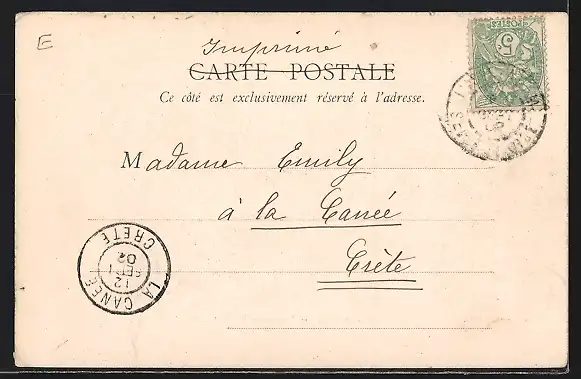 E
Imprimé
CARTE POSTALE
Ce côté est exclusivement réservé à l'adresse.
Madame Emily
à la Canée
Crète
POSTES
5
LA CANEE
12
SEPT
02
CRETE